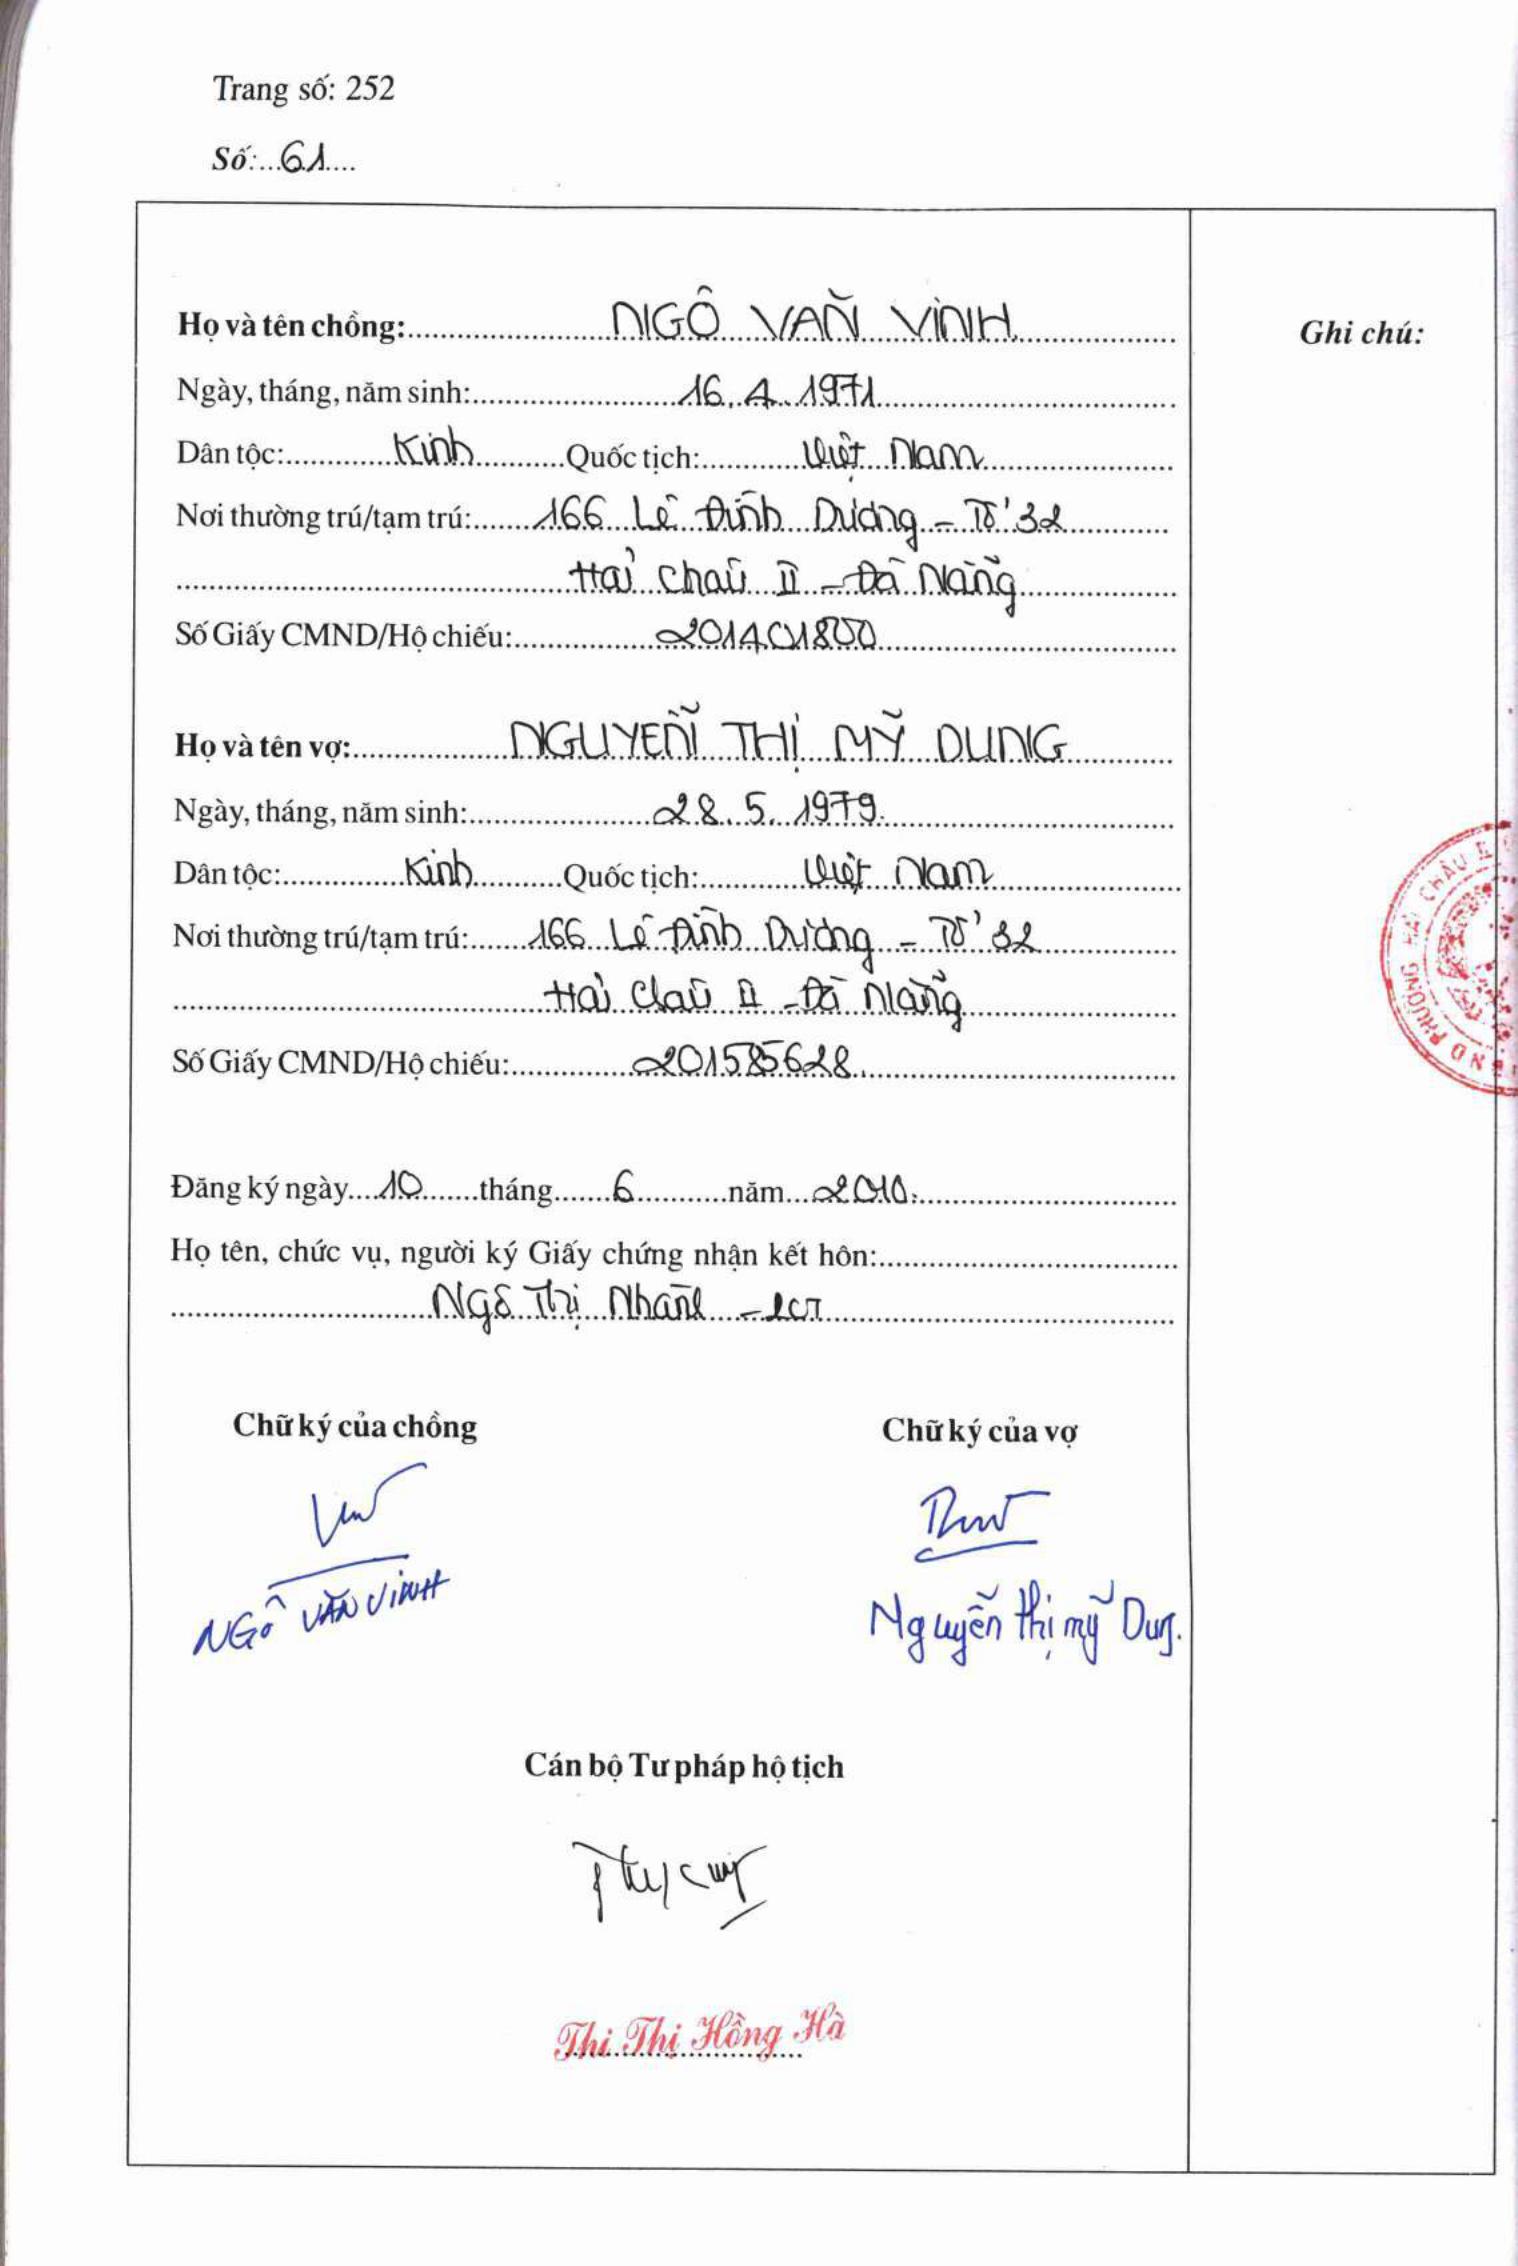 Trang số: 252
Số: 61
Họ và tên chồng: NGÔ VĂN VINH
Ghi chú:
Ngày, tháng, năm sinh: 16.4.1971
Dân tộc: Kinh Quốc tịch: Việt Nam
Nơi thường trú/tạm trú: 166 Lê Đình Dương - Tổ 32
Hải Châu II - Đà Nẵng
Số Giấy CMND/Hộ chiếu: 201401800
Họ và tên vợ: NGUYỄN THỊ MỸ DUNG
Ngày, tháng, năm sinh: 28.5.1979.
Dân tộc: Kinh Quốc tịch: Việt Nam
Nơi thường trú/tạm trú: 166 Lê Đình Dương - Tổ 32
Hải Châu II - Đà Nẵng
Số Giấy CMND/Hộ chiếu: 201585628
ND PHƯỜNG HẢI CHÂU II
Đăng ký ngày 10 tháng 6 năm 2010.
Họ tên, chức vụ, người ký Giấy chứng nhận kết hôn:
Ngô Thị Nhành -
Chữ ký của chồng
Chữ ký của vợ
NGÔ VĂN VINH
Nguyễn thị mỹ Dung.
Cán bộ Tư pháp hộ tịch
Thi Thị Hồng Hà